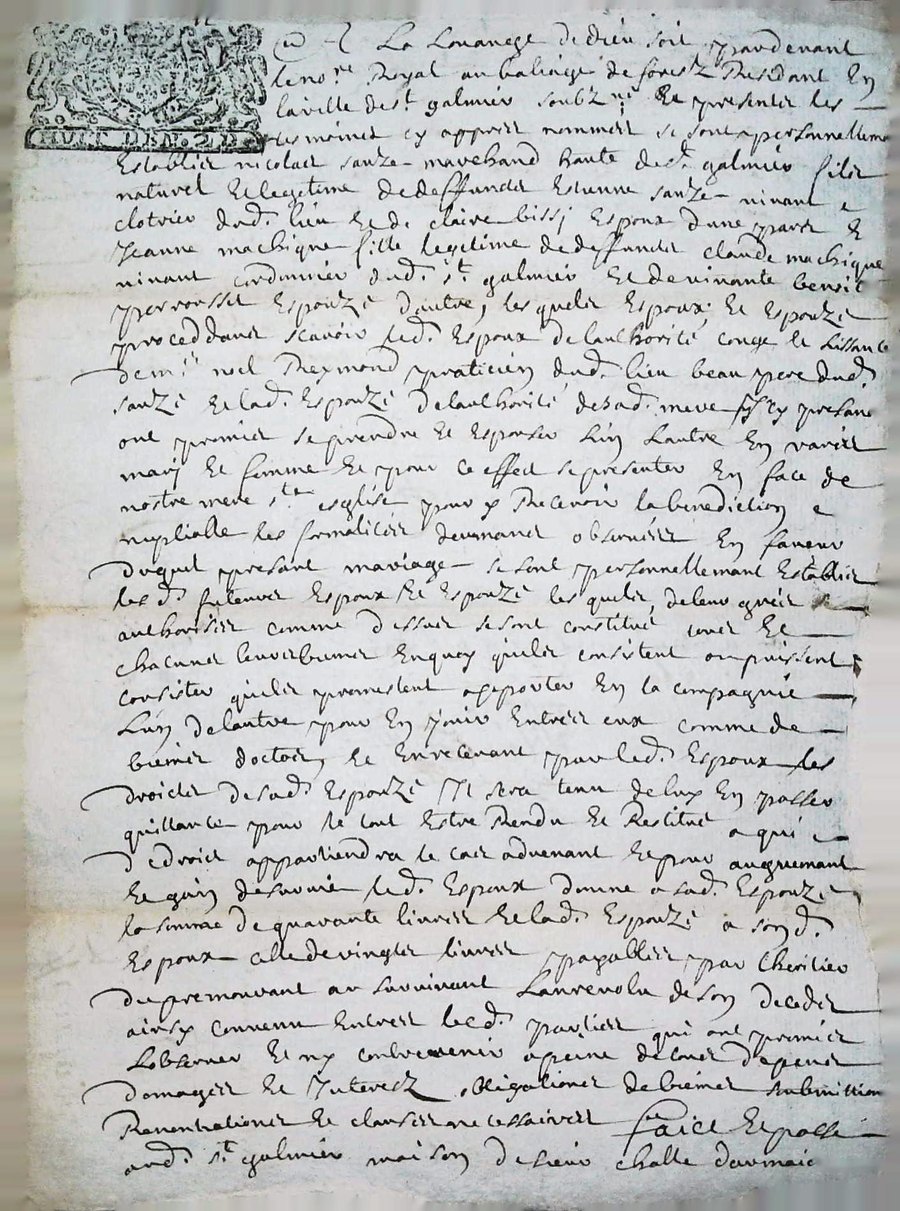 HUIT DEN.
A La Louange de dieu soit pardevant
le nore Royal au baliage de forestz Residant En
la ville de st galmier soubzne Et presents les
tesmoins cy appres nommes se sont personnellement
Establies nicolas sauze marchand hoste de st galmier fils
naturel Et legitime de deffunct Estienne sauze vivant
clotrier dud. lieu Et de claire bissy Espoux dune part Et
Jeanne machigue fille legitime de deffunct claude machigue
vivant cordonnier dud. st galmier Et de vivante benoite
perrousset Espouze dautre, lesquels Espoux Et Espouze
proceddans scavoir led. Espoux de lauthorité conge Et lissance
de mr noel Reymond praticien dud. lieu beau pere dud.
sauze Et lad. Espouze de lauthorité de sad. mere icy presans
ont promis se prendre Et Espouser Lun Lautre En vraies
mary Et femme Et pour ce effect se presenter En face de
nostre mere ste esglise pour y Recevoir la benediction
nuptialle les formalites deumans observées En faveur
duquel presant mariage se sont personnellemant Establies
les d. futeurs Espoux Et Espouze lesquels, de leur grées
authorises comme dessus se sont constitué tous Et
chacuns leurs biens En quoy quils consistent ou puissent
consister quils promestent apporter En la compagnie
Lun de lautre pour En jouir Entres eux comme de
biens doctaux, Et En recevant par led. Espoux les
droicts de sad. Espouze Il sera tenu de lux En passer
quittance pour le tout Estre Rendu Et Restitué a qui
de droict appartiendra le cas advenant Et pour augmant
Et gain de survie led. Espoux donne a sad. Espouze
la somme de quarante livres Et lad. Espouze a son d.
Espoux celle de vingts livres payables par Lheritier
du premourant au survivant Lan revolu de son deceds
ainsy convenu Entres lesd. parties qui ont promis
Lobserver Et ny contrevenir a peine de tous depens
domages Et Interestz obligations de biens submittion
Renontiations Et clauses necessaires faict Et passé
aud. st galmier maison de sieur challe darmaic